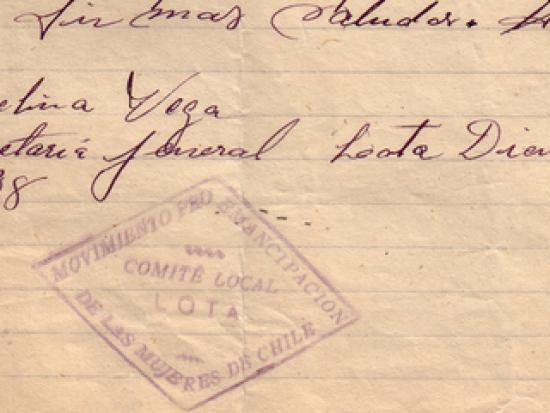 Sin mas saludos.
elina Vega
etaria jeneral Loota Dicm
38
MOVIMIENTO PRO EMANCIPACION
COMITÉ LOCAL
LOTA
DE LAS MUJERES DE CHILE